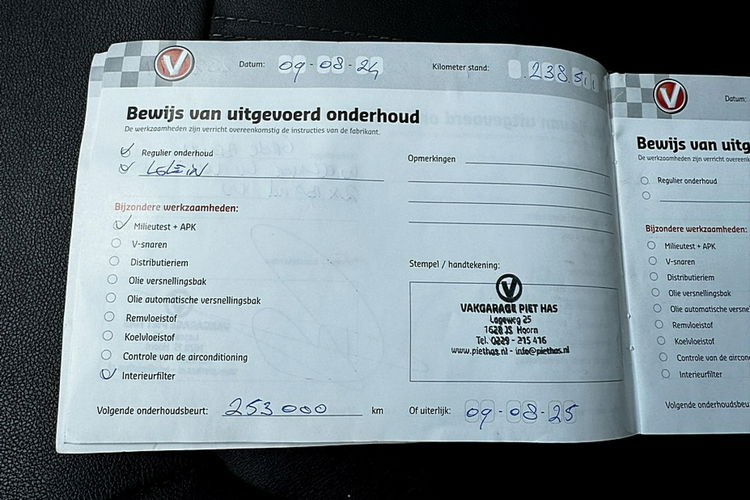 V
Datum: 09-08-24
Kilometer stand: 238.5
Bewijs van uitgevoerd onderhoud
De werkzaamheden zijn verricht overeenkomstig de instructies van de fabrikant.
Regulier onderhoud
Bijzondere werkzaamheden:
Milieutest + APK
V-snaren
Distributieriem
Olie versnellingsbak
Olie automatische versnellingsbak
Remvloeistof
Koelvloeistof
Controle van de airconditioning
Interieurfilter
Volgende onderhoudsbeurt: 253000 km
Opmerkingen
Stempel / handtekening:
V
VAKGARAGE PIET HAS
Lageweg 25
1628 JS Hoorn
Tel. 0229 - 215 416
www.piethas.nl - info@piethas.nl
Of uiterlijk: 09-08-25
V
Datum:
Bewijs van uitg
De werkzaamheden zijn verricht overeen
Regulier onderhoud
Bijzondere werkzaamheden:
Milieutest + APK
V-snaren
Distributieriem
Olie versnellingsbak
Olie automatische versne
Remvloeistof
Koelvloeistof
Controle van de aircon
Interieurfilter
Volgende onderhoudsbeu